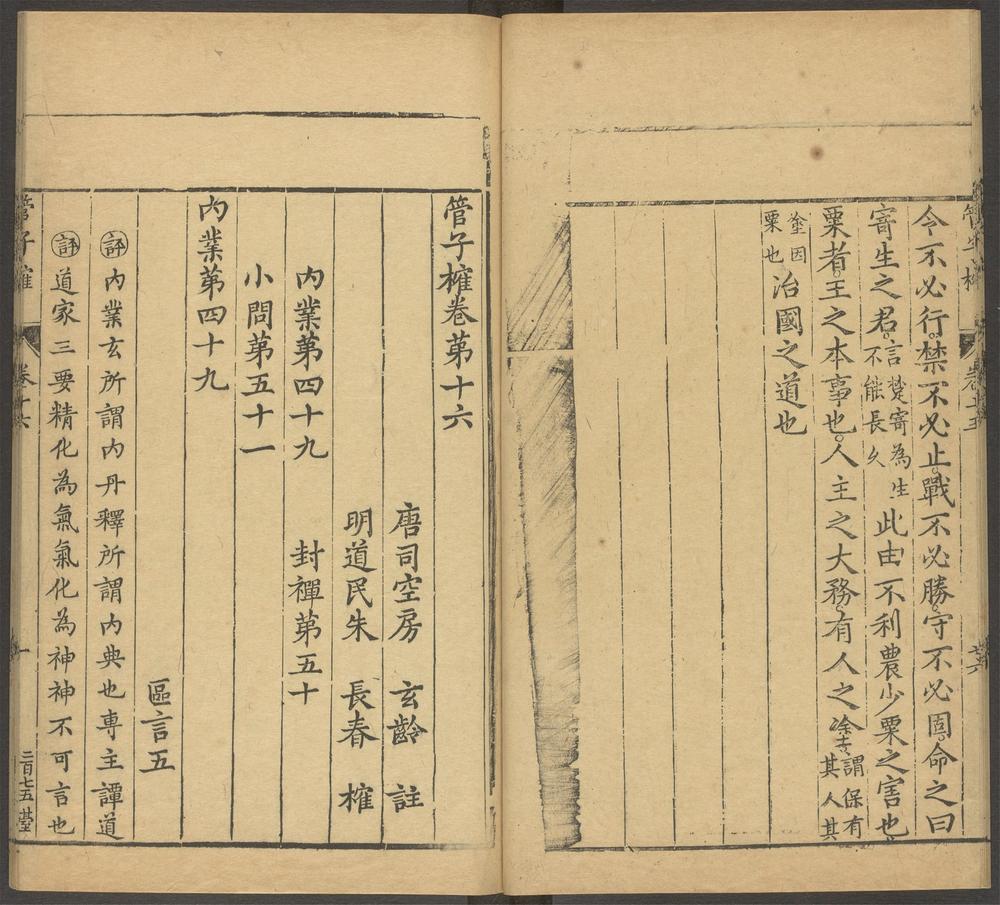 令不必行禁不必止戰不必勝守不必固命之曰
寄生之君言楚寄為生不能長久此由不利農少粟之害也
粟者王之本事也人主之大務有人之塗謂保有其人其
塗因粟也治國之道也
管子榷卷第十六
唐司空房 玄齡 註
明道民朱 長春 榷
內業第四十九 封禪第五十
小問第五十一
內業第四十九
區言五
評內業玄所謂內丹釋所謂內典也專主譚道
評道家三要精化為氣氣化為神神不可言也
管子榷 卷十六 一 二百七五